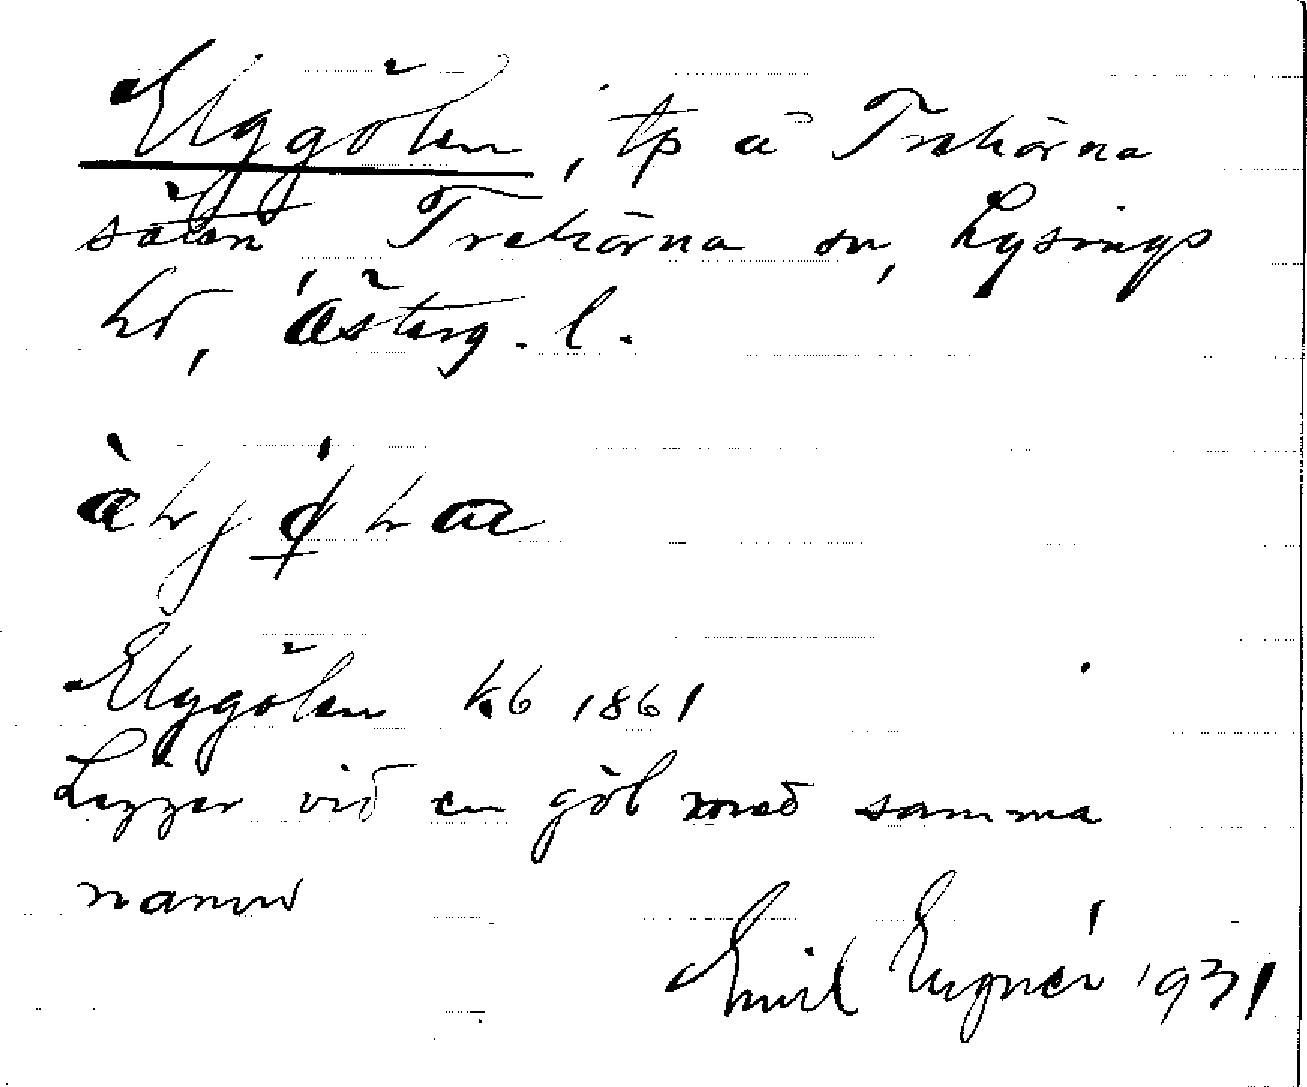 Elggölen, tp å Trehörna
säteri Trehörna sn, Lysings
hd, Österg. l.
Elggölen kb 1861
Ligger vid en göl med samma
namn
Emil Eugnér 1931